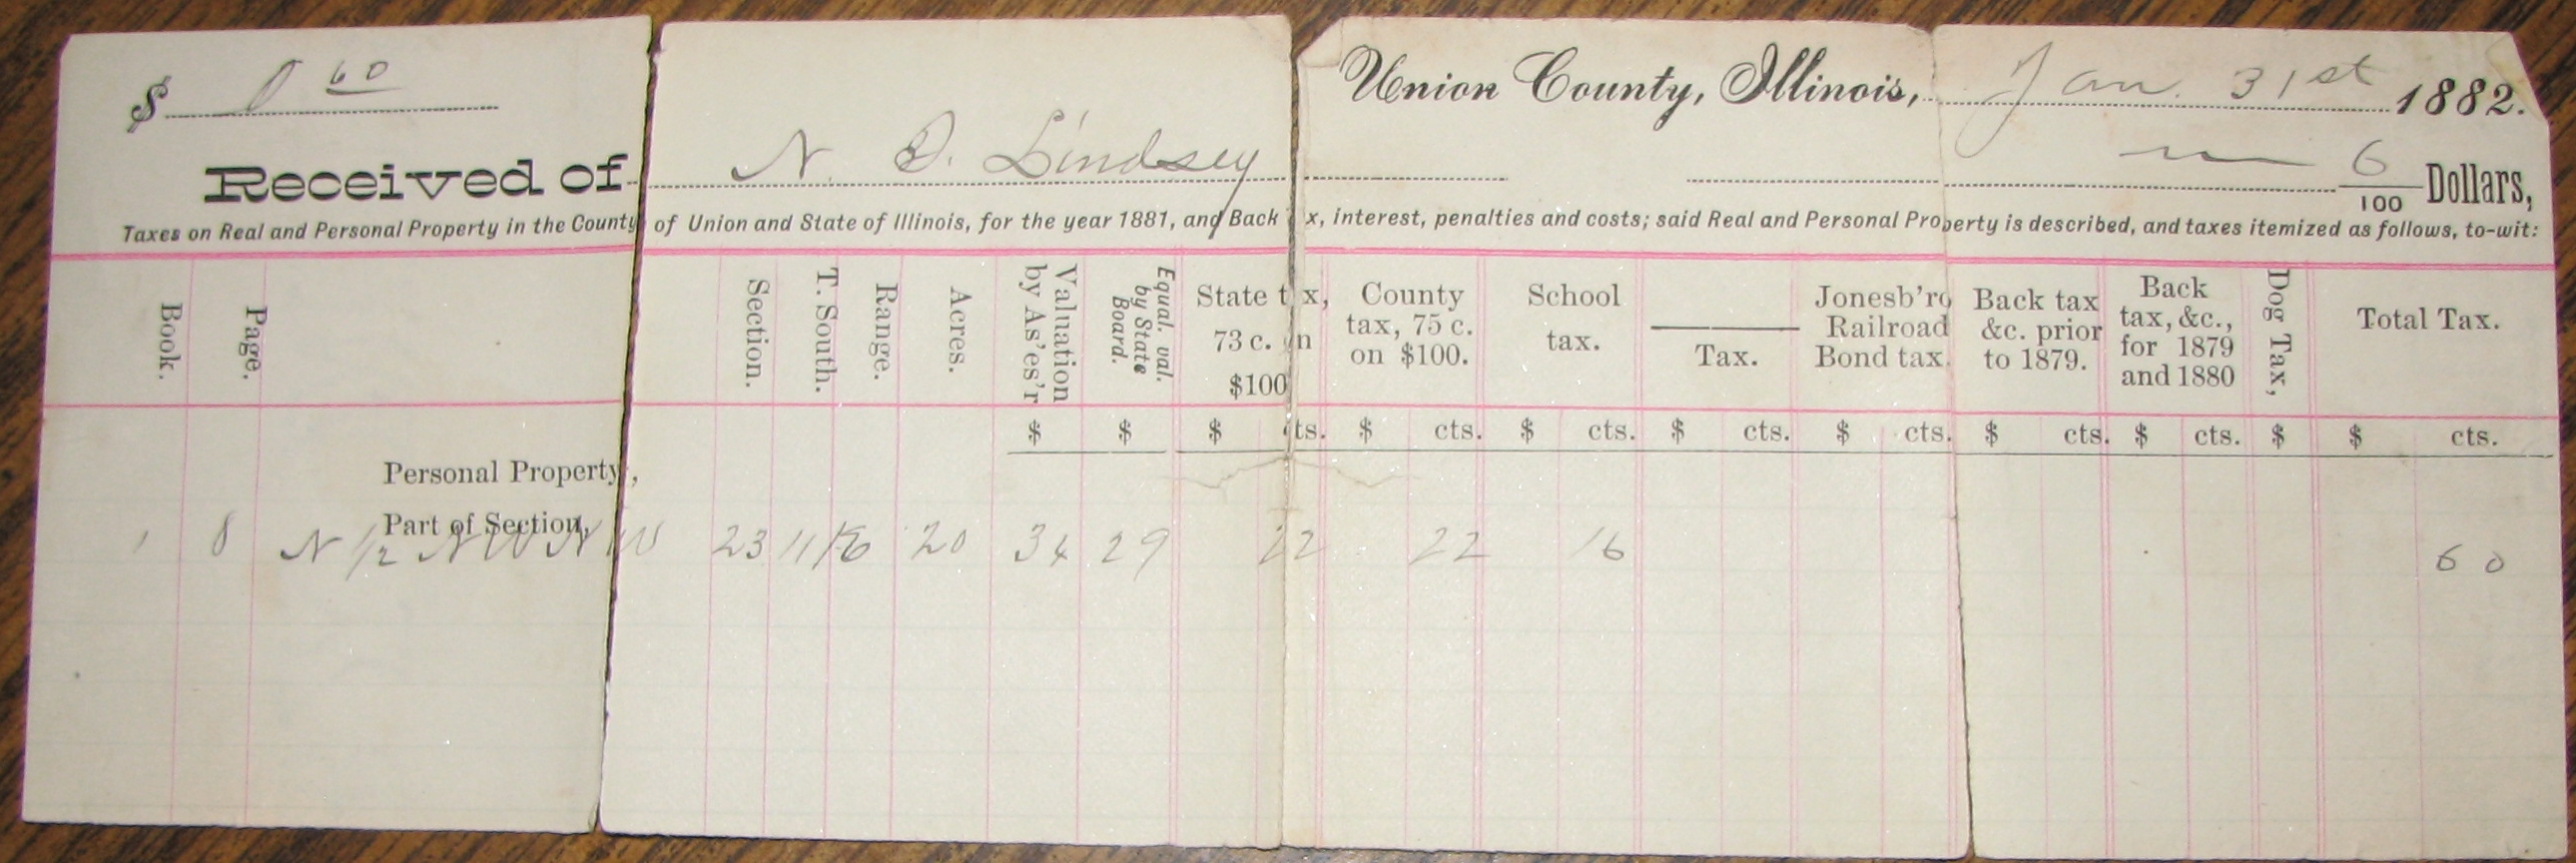 $ 0 60 Union County, Illinois, Jan. 31st 1882.
Received of N. O. Lindsey 6/100 Dollars,
Taxes on Real and Personal Property in the County of Union and State of Illinois, for the year 1881, and Back x, interest, penalties and costs; said Real and Personal Property is described, and taxes itemized as follows, to-wit:
Book. Page. Section. T. South. Range. Acres. Valuation by As'es'r Equal. val. by State Board. State t x, 73 c. n $100 County tax, 75 c. on $100. School tax. Tax. Jonesb'ro Railroad Bond tax. Back tax &c. prior to 1879. Back tax, &c., for 1879 and 1880 Dog Tax, Total Tax.
$ $ $ cts. $ cts. $ cts. $ cts. $ cts. $ cts. $ cts. $ $ cts.
Personal Property,
Part of Section,
1 8 N 1/2 NW NW 23 11 20 34 29 22 22 16 60